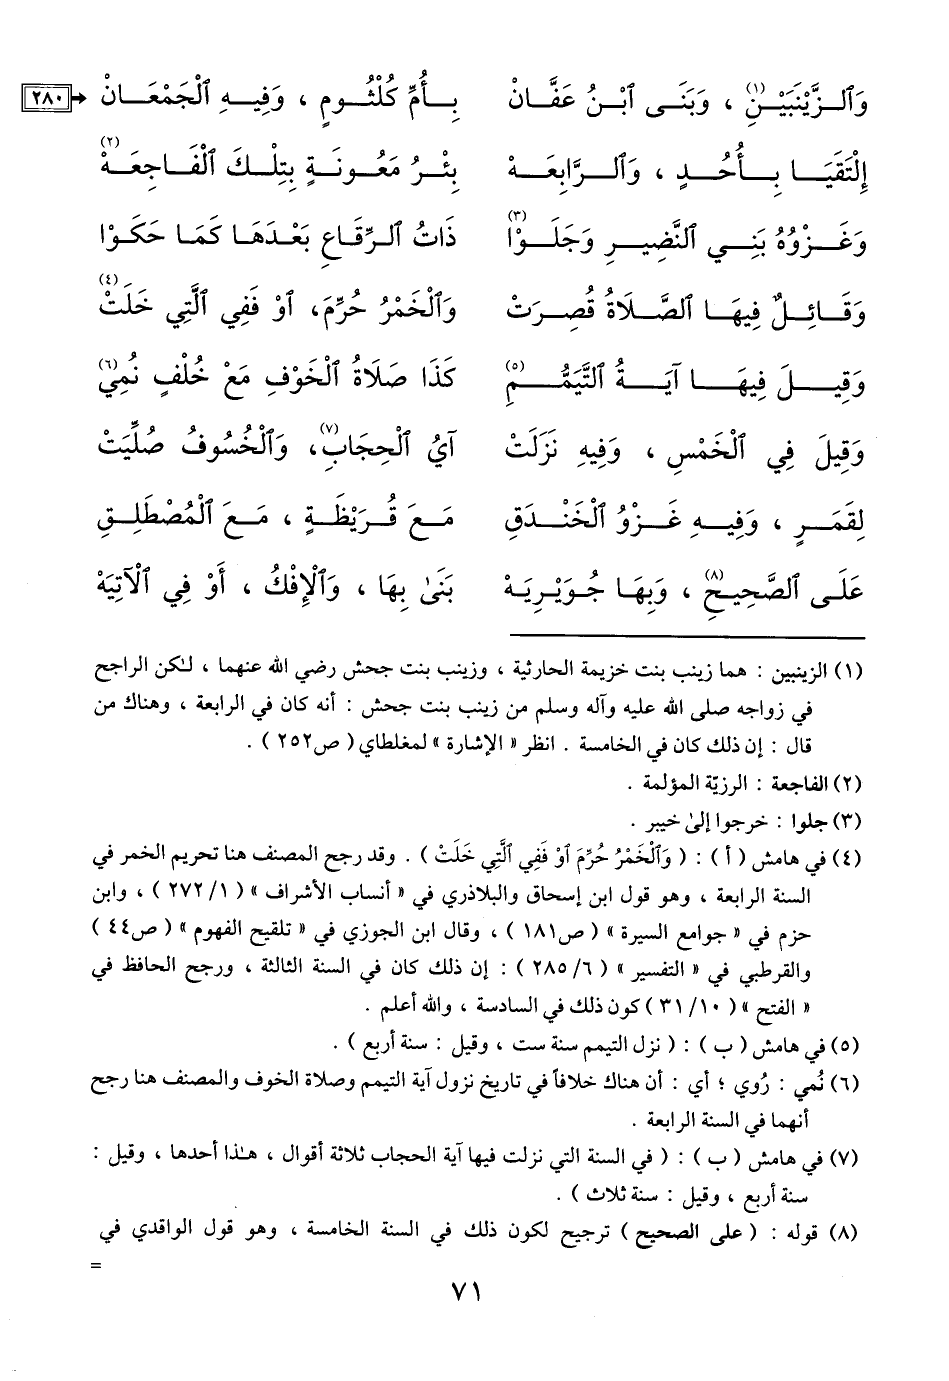 وَٱلـزَّيْنَبَيْـنِ(١) ، وَبَنَـى ٱبْـنُ عَفَّـانْ بِـأُمِّ كُلْثُـومٍ ، وَفِيـهِ ٱلْجَمْعَـانْ ٢٨٠
إِلْتَقَيَـا بِـأُحُـدٍ ، وَٱلـرَّابِعَـهْ بِئْـرُ مَعُـونَـةٍ بِتِلْـكَ ٱلْفَـاجِعَـهْ(٢)
وَغَـزْوُهُ بَنِـي ٱلنَّضِيـرِ وَجَلَـوْا(٣) ذَاتُ ٱلـرِّقَـاعِ بَعْـدَهَـا كَمَـا حَكَـوْا
وَقَـائِـلٌ فِيهَـا ٱلصَّـلَاةُ قُصِـرَتْ وَٱلْخَمْرُ حُرِّمَ، ٱوْ فَفِي ٱلَّتِي خَلَتْ(٤)
وَقِيـلَ فِيهَـا آيَـةُ ٱلتَّيَمُّـمِ(٥) كَذَا صَلَاةُ ٱلْخَوْفِ مَعْ خُلْفٍ نُمِي(٦)
وَقِيلَ فِي ٱلْخَمْسِ ، وَفِيهِ نَزَلَتْ آيُ ٱلْحِجَابِ(٧)، وَٱلْخُسُوفُ صُلِّيَتْ
لِقَمَـرٍ ، وَفِيـهِ غَـزْوُ ٱلْخَنْـدَقِ مَـعَ قُـرَيْظَـةٍ ، مَـعَ ٱلْمُصْطَلِـقِ
عَلَـى ٱلصَّحِيـحِ(٨) ، وَبِهَـا جُوَيْـرِيَـهْ بَنَىٰ بِهَا ، وَٱلْإِفْكُ ، أَوْ فِي ٱلْآتِيَهْ
(١) الزينبين : هما زينب بنت خزيمة الحارثية ، وزينب بنت جحش رضي الله عنهما ، لـٰكن الراجح
في زواجه صلى الله عليه وآله وسلم من زينب بنت جحش : أنه كان في الرابعة ، وهناك من
قال : إن ذلك كان في الخامسة . انظر « الإشارة » لمغلطاي ( ص٢٥٢ ) .
(٢) الفاجعة : الرزيّة المؤلمة .
(٣) جلوا : خرجوا إلىٰ خيبر .
(٤) في هامش ( أ ) : ( وَٱلْخَمْرُ حُرِّمَ ٱوْ فَفِي ٱلَّتِي خَلَتْ ) . وقد رجح المصنف هنا تحريم الخمر في
السنة الرابعة ، وهو قول ابن إسحاق والبلاذري في « أنساب الأشراف » ( ١/ ٢٧٢ ) ، وابن
حزم في « جوامع السيرة » ( ص١٨١ ) ، وقال ابن الجوزي في « تلقيح الفهوم » ( ص٤٤ )
والقرطبي في « التفسير » ( ٦/ ٢٨٥ ) : إن ذلك كان في السنة الثالثة ، ورجح الحافظ في
« الفتح » ( ١٠/ ٣١ ) كون ذلك في السادسة ، والله أعلم .
(٥) في هامش ( ب ) : ( نزل التيمم سنة ست ، وقيل : سنة أربع ) .
(٦) نُمي : رُوي ؛ أي : أن هناك خلافاً في تاريخ نزول آية التيمم وصلاة الخوف والمصنف هنا رجح
أنهما في السنة الرابعة .
(٧) في هامش ( ب ) : ( في السنة التي نزلت فيها آية الحجاب ثلاثة أقوال ، هـٰذا أحدها ، وقيل :
سنة أربع ، وقيل : سنة ثلاث ) .
(٨) قوله : ( على الصحيح ) ترجيح لكون ذلك في السنة الخامسة ، وهو قول الواقدي في
=
٧١